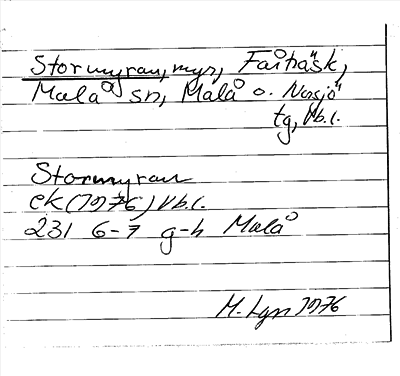 Stormyran, myr, Fårträsk,
Malå sn, Malå o. Norsjö
tg, Vb.l.
Stormyran
ek (1976) Vb.l.
231 6-7 g-h Malå
M. Lgn 1976